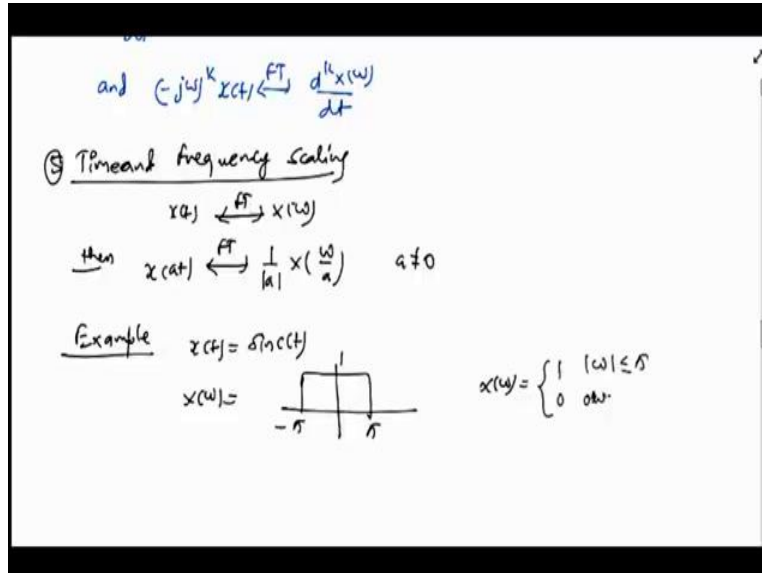 and (-jω)^k x(t) ⟷FT d^k X(ω) / dt
⑤ Time and frequency scaling
x(t) ⟷FT X(ω)
then x(at) ⟷FT 1/|a| X(ω/a) a≠0
Example x(t) = sinc(t)
X(ω) = 1 -π π X(ω) = { 1 |ω| ≤ π
0 ow.